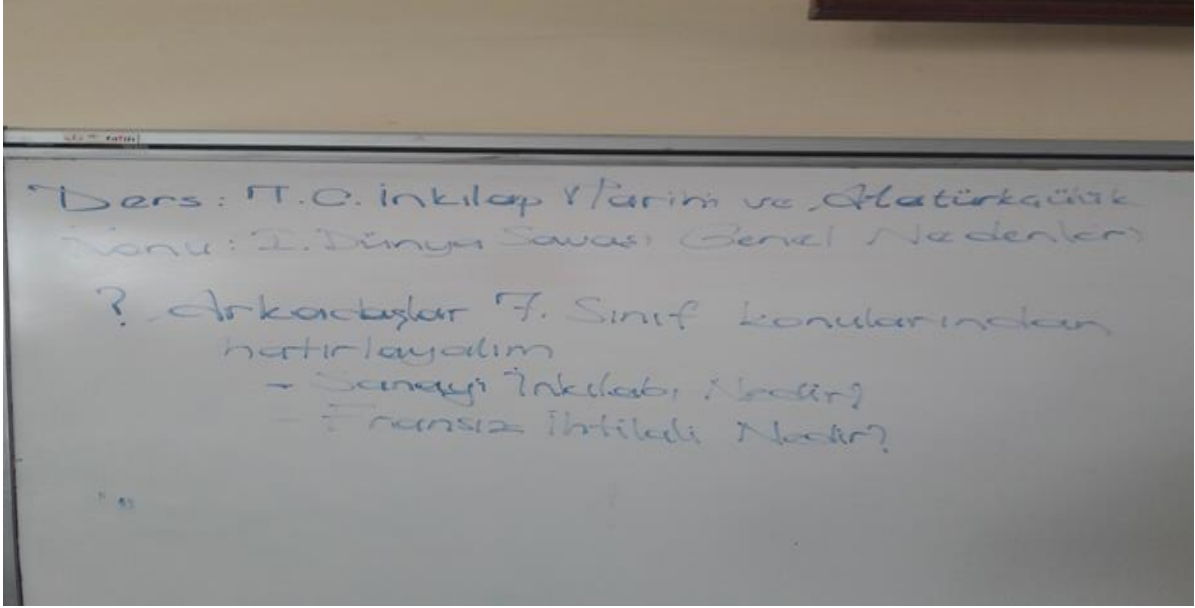 Ders: T.C. İnkılap Tarihi ve Atatürkçülük
Konu: I. Dünya Savaşı Genel Nedenleri
? Arkadaşlar 7. Sınıf konularından
hatırlayalım
- Sanayi İnkılabı Nedir?
- Fransız İhtilali Nedir?